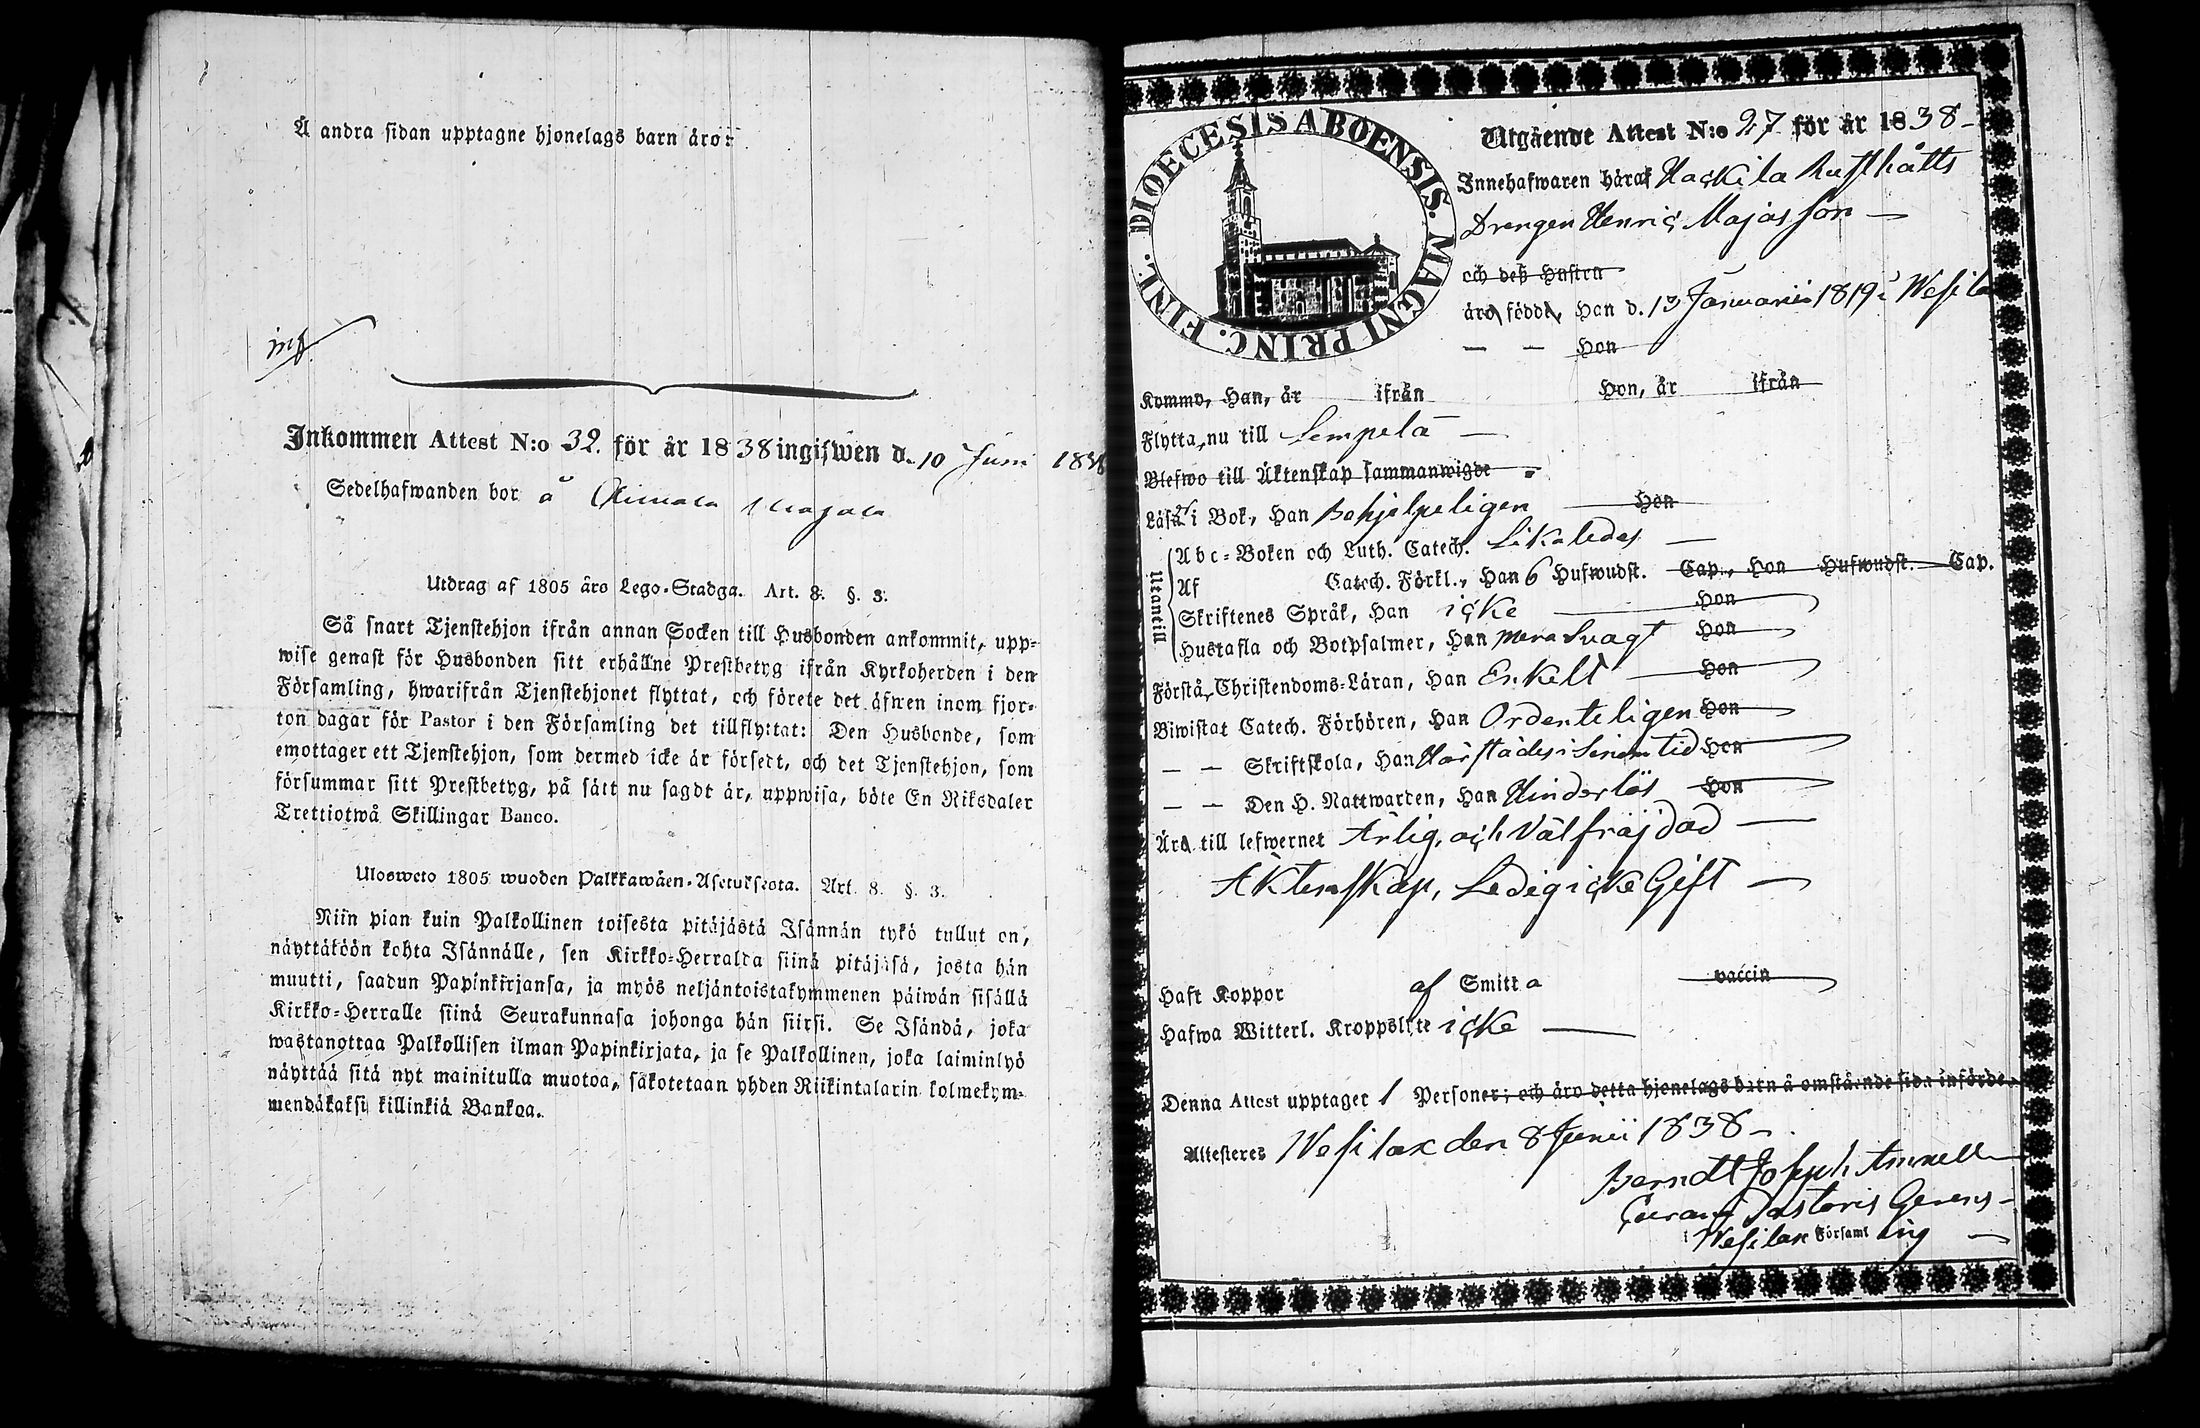 Å andra sidan upptagne hjonelags barn äro:
inf.
Inkommen Attest N:o 32. för år 1838 ingifwen d. 10 Juni 1838
Sedelhafwanden bor å
Utdrag af 1805 åro Lego-Stadga. Art. 8. §. 3.
Så snart Tjenstehjon ifrån annan Socken till Husbonden ankommit, upp-
wise genast för Husbonden sitt erhållne Prestbetyg ifrån Kyrkoherden i den
Församling, hwarifrån Tjenstehjonet flyttat, och förete det äfwen inom fjor-
ton dagar för Pastor i den Församling det tillflyttat: Den Husbonde, som
emottager ett Tjenstehjon, som dermed icke är försedt, och det Tjenstehjon, som
försummar sitt Prestbetyg, på sätt nu sagdt är, uppwisa, böte En Riksdaler
Trettiotwå Skillingar Banco.
Ulosweto 1805 wuoden Palkkawäen-Asetuksesta. Art. 8. §. 3.
Niin pian kuin Palkollinen toisesta pitäjästä Isännän tykö tullut on,
näyttäköön kohta Isännälle, sen Kirkko-Herralda siinä pitäjäsä, josta hän
muutti, saadun Papinkirjansa, ja myös neljäntoistakymmenen päiwän sisällä
Kirkko-Herralle siinä Seurakunnasa johonga hän siirsi. Se Isändä, joka
wastanottaa Palkollisen ilman Papinkirjata, ja se Palkollinen, joka laiminlyö
näyttää sitä nyt mainitulla muotoa, sakotetaan yhden Riikintalarin kolmekym-
mendäkaksi killinkiä Bankoa.
DIOECESIS ABOENSIS. MAGNI PRINC. FINL.
Utgående Attest N:o 27 för år 1838
Innehafwaren häraf Hackila Rusthålts
Drengen Henric Majasson
och deß Hustru
äro födde, Han d. 13 Januarii 1819 i Wesila
— — Hon
Kommo, Han, år ifrån Hon, år ifrån
Flytta nu till Lempelä
Blefwo till Äktenskap sammanwigde
Läsa i Bok, Han Behjelpeligen Hon
Utantill
Abc-Boken och Luth. Catech. Likaledes
Af Catech. Förkl., Han 6 Hufwudst. Cap., Hon Hufwudst. Cap.
Skriftenes Språk, Han icke Hon
Hustafla och Botpsalmer, Han mera Svagt Hon
Förstå Christendoms-Läran, Han Enkelt Hon
Biwistat Catech. Förhören, Han Ordenteligen Hon
— — Skriftskola, Han Härstädes i Sinom tid Hon
— — Den H. Nattwarden, Han Hinderlös Hon
Äro till lefwernet Ärlig, och Välfräjdad
Äktenskap, Ledig icke Gift
Haft Koppor af Smitta vaccin
Hafwa Witterl. Kroppslyte icke
Denna Attest upptager 1 Personer; och äro detta hjonelags barn å omstående sida införde.
Attesteres Wesilax den 8 Junii 1838
Berndt Joseph
Pastoris Gerens
i Wesilax Församling